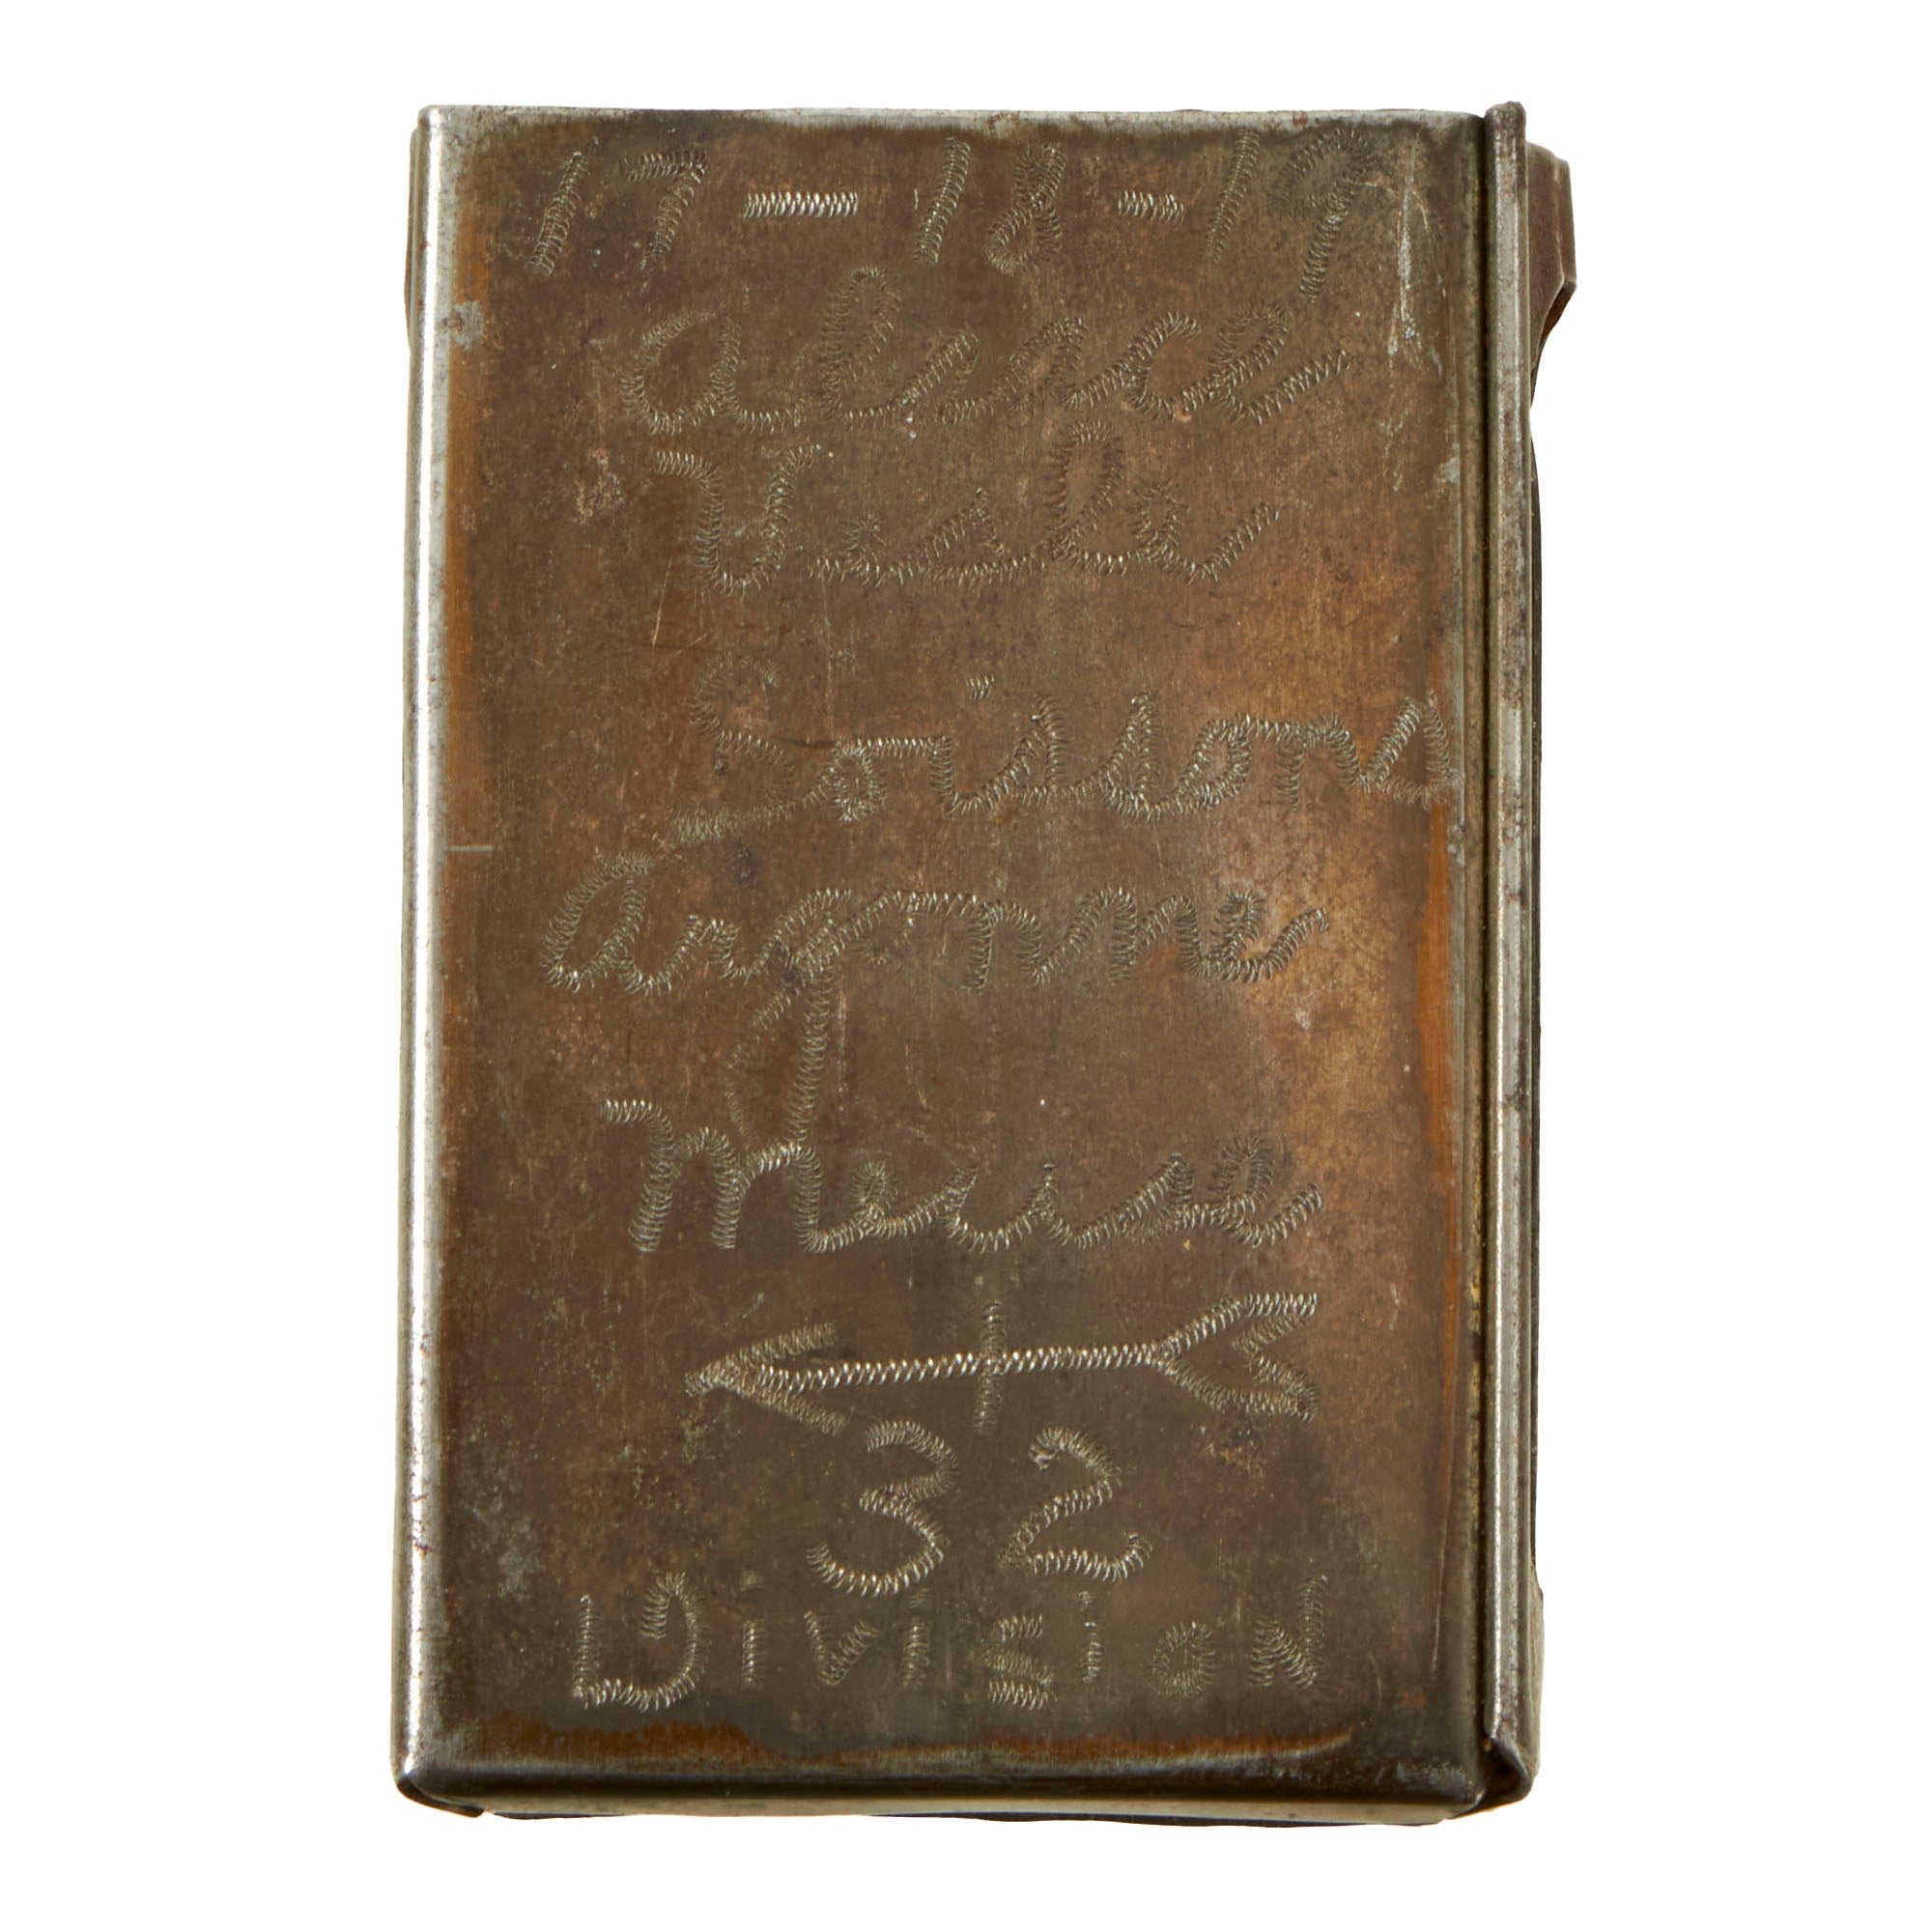 17-18-19
alsace
Visle
Soissons
Argonne
Meuse
32
DiViSiON